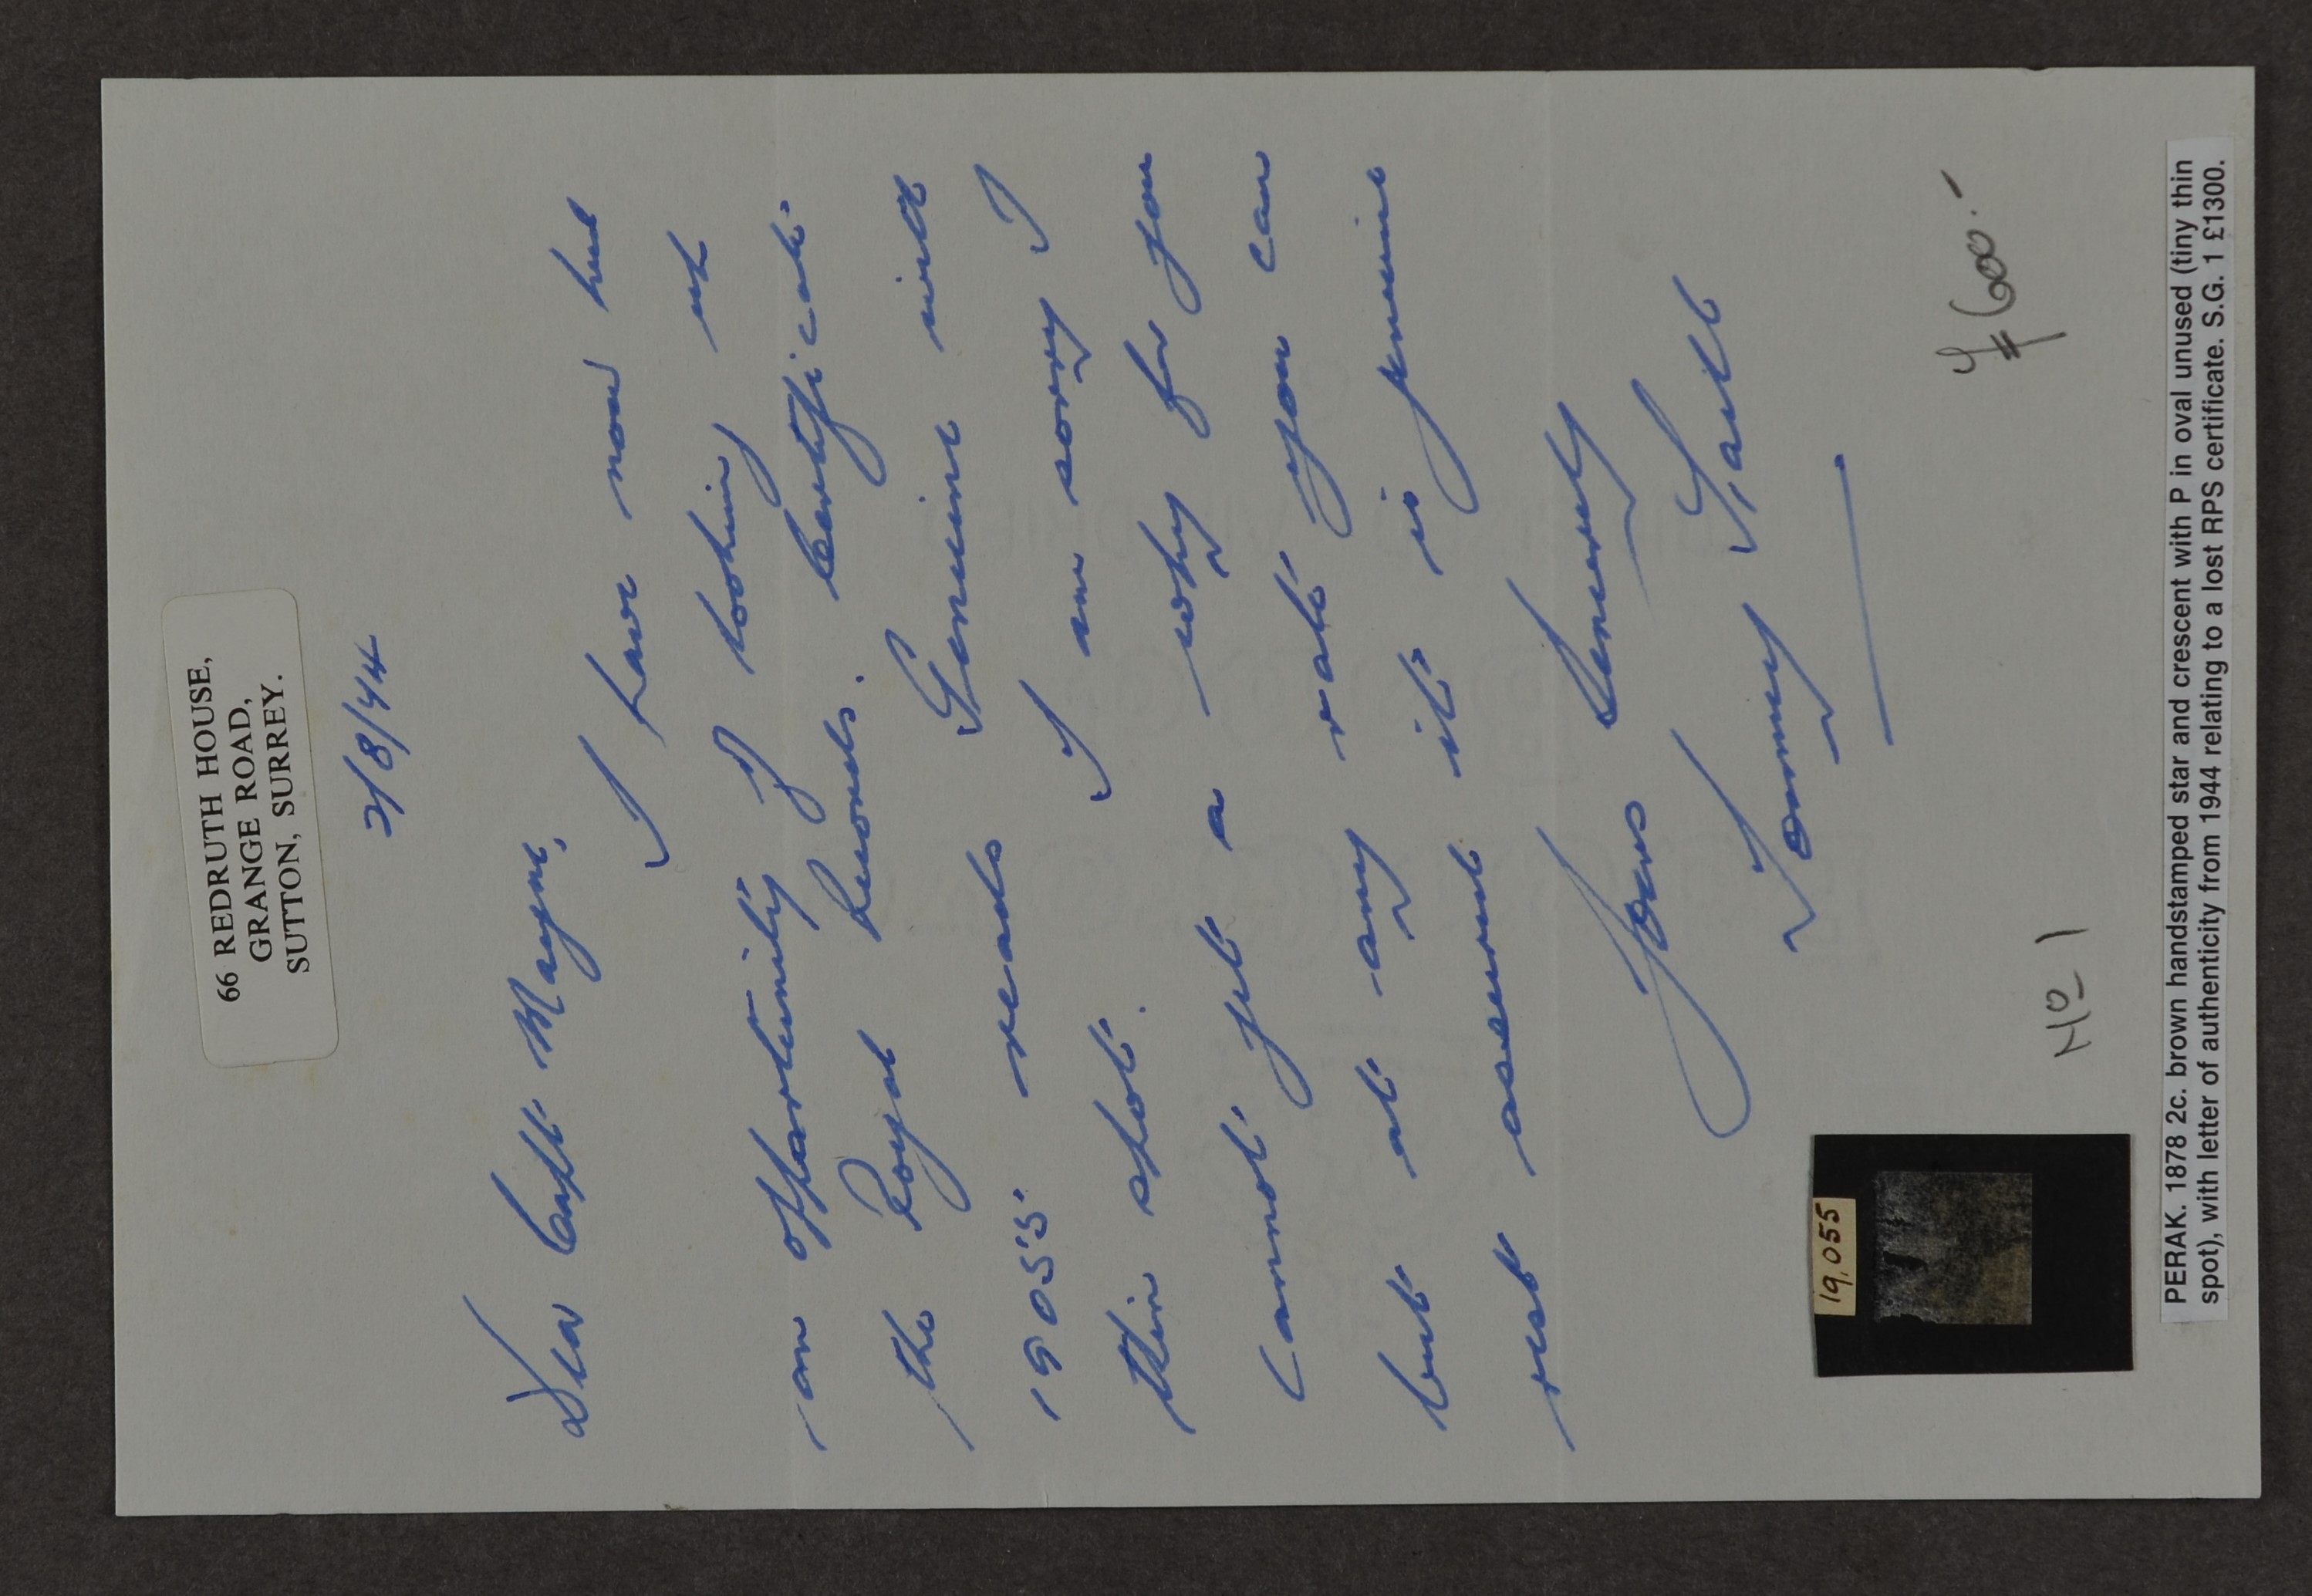 66 REDRUTH HOUSE,
GRANGE ROAD,
SUTTON, SURREY.
2/8/44
Dear Capt Mayne,
I have now had
an opportunity of looking up
the Royal Records. Certificate
19055 reads Genuine with
thin spot. I am sorry I
cannot get a copy for you
but at any rate you can
rest assured it is genuine
Yours Sincerely
Tommy
19,055
No 1
£600.-
PERAK. 1878 2c. brown handstamped star and crescent with P in oval unused (tiny thin
spot), with letter of authenticity from 1944 relating to a lost RPS certificate. S.G. 1 £1300.